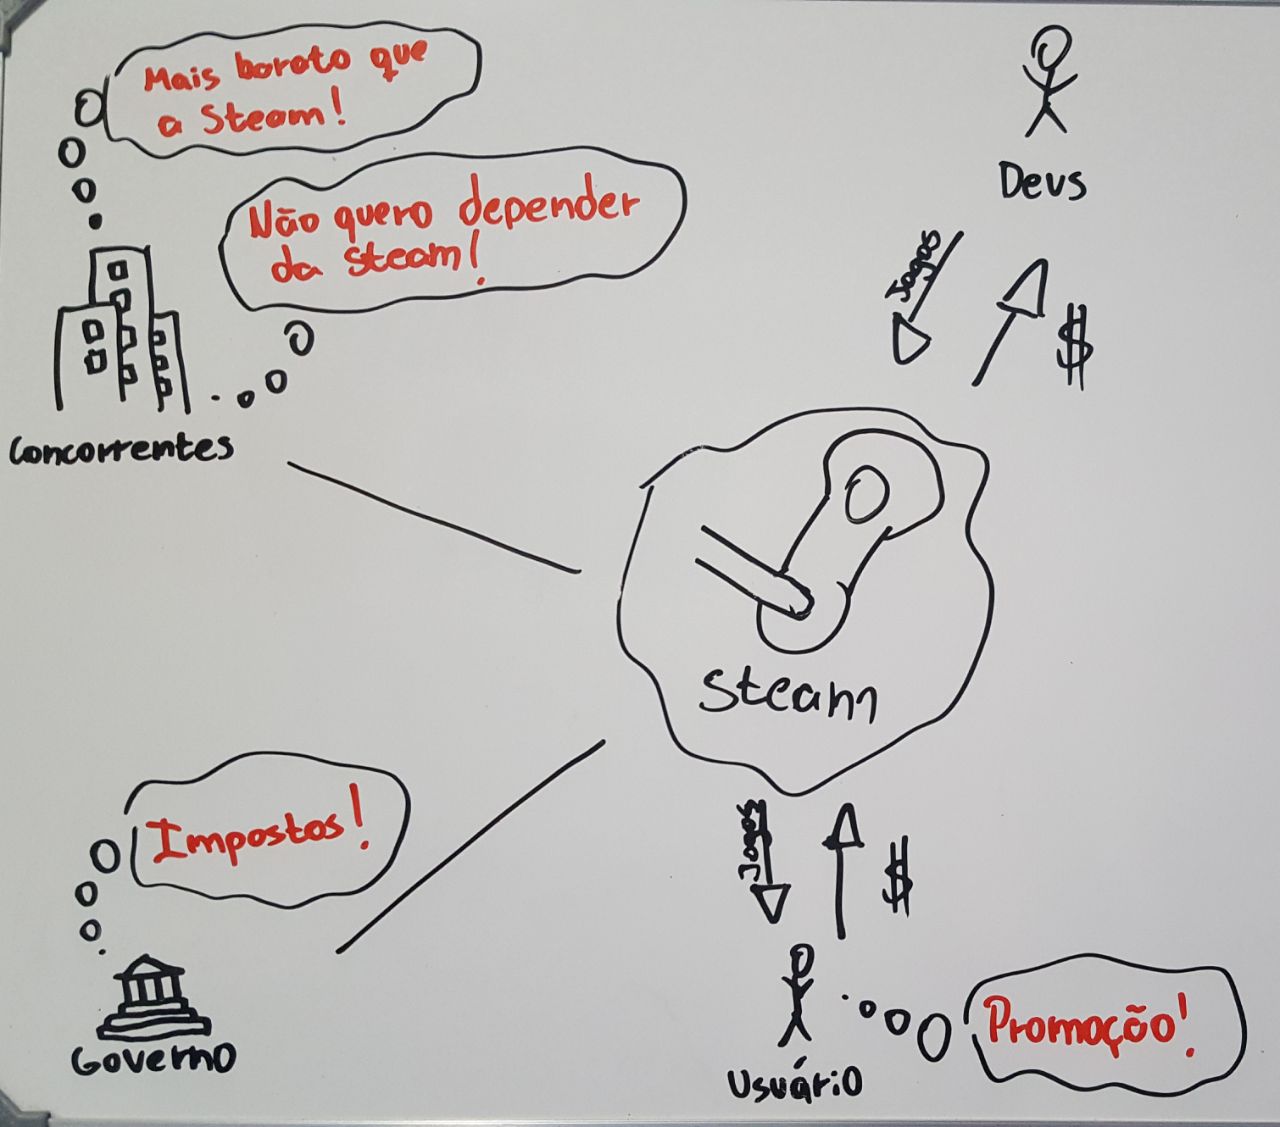 Mais barato que
a Steam!
Não quero depender
da steam!
Concorrentes
Devs
Jogos
$
Steam
Impostos!
Governo
Jogos
$
Usuário
Promoção!